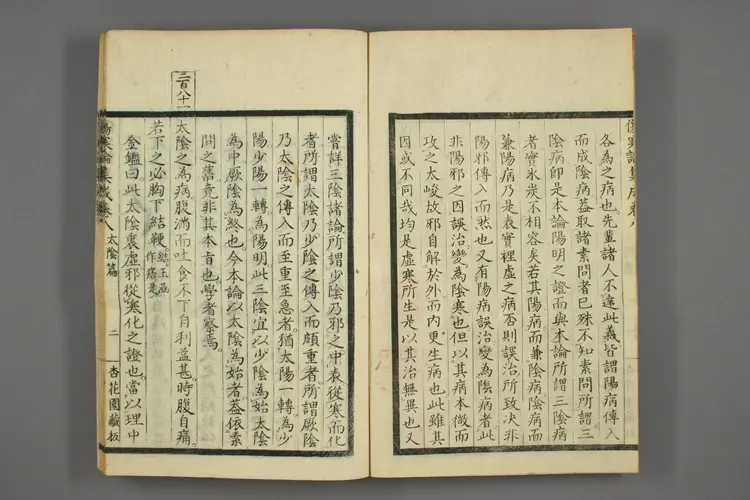 各為之病也先輩諸人不達此義皆謂陽病傳入
而成陰病蓋取諸素問者已殊不知素問所謂三
陰病即是本論陽明之證而與本論所謂三陰病
者實氷炭不相容矣若其陽病而兼陰病陰病而
兼陽病乃是表實裡虛之病否則誤治所致決非
陽邪傳入而然也又有陽病誤治變為陰病者此
非陽邪之因誤治變為陰寒也但以其病本微而
攻之太峻故邪自解於外而内更生病也此雖其
因或不同哉均是虛寒所生是以其治無異也又
嘗詳三陰諸論所謂少陰乃邪之中表從寒而化
者所謂太陰乃少陰之傳入而頗重者所謂厥陰
乃太陰之傳入而至重至急者猶太陽一轉為少
陽少陽一轉為陽明此三陰宜以少陰為始太陰
為中厥陰為終也今本論以太陰為始者蓋依素
問之舊竟非其本旨也學者察焉
二百八十一
太陰之為病腹滿而吐食不下自利益甚時腹自痛
若下之必胸下結鞕
金鑑曰此太陰裏虛邪從寒化之證也當以理中
傷寒論集成卷八
太陰篇
二
杏花園藏板